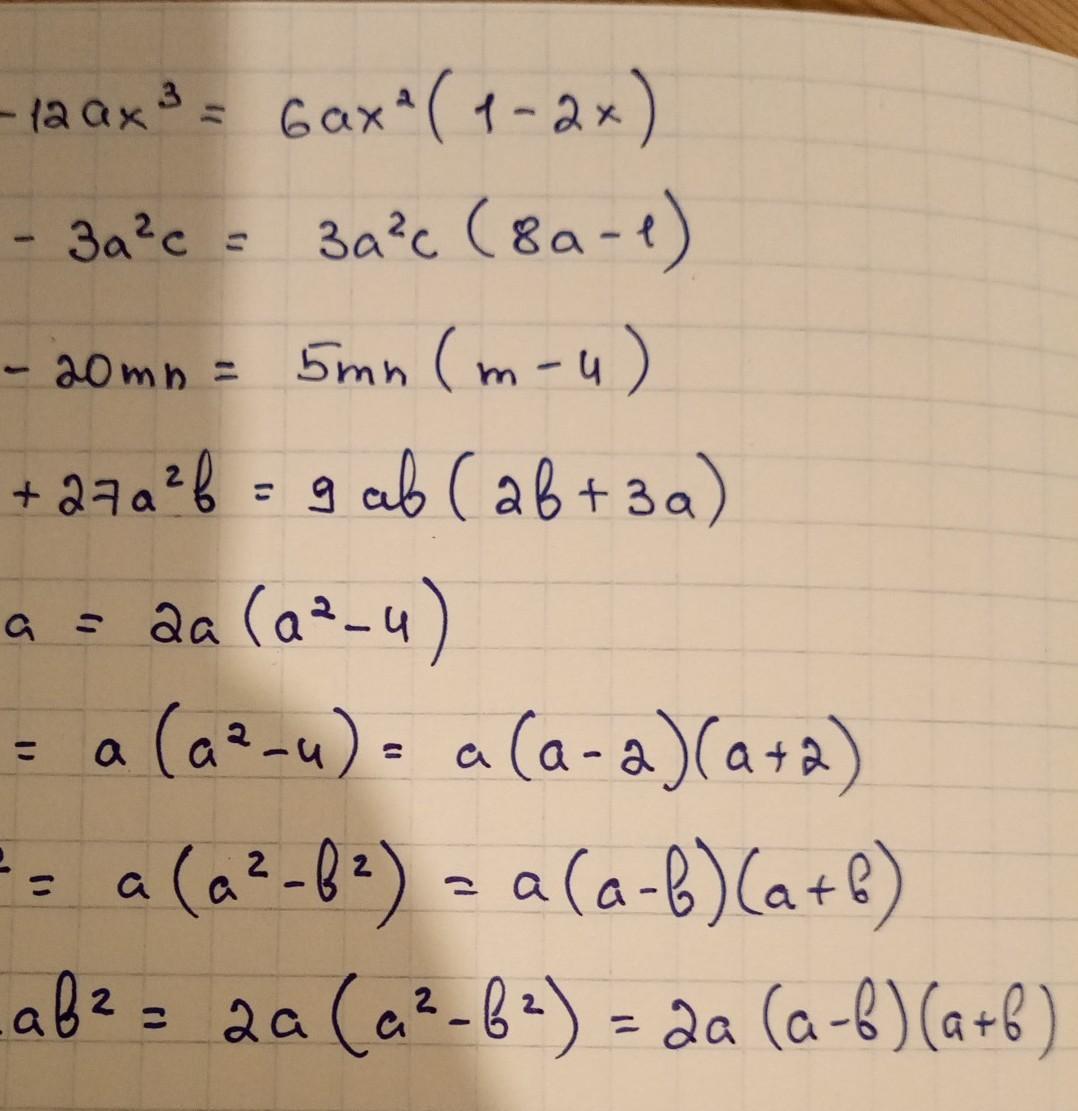 -12ax³ = 6ax²(1-2x)
- 3a²c = 3a²c(8a-1)
- 20mn = 5mn(m-4)
+ 27a²b = 9ab(2b+3a)
a = 2a(a²-4)
= a(a²-4) = a(a-2)(a+2)
² = a(a²-b²) = a(a-b)(a+b)
ab² = 2a(a²-b²) = 2a(a-b)(a+b)